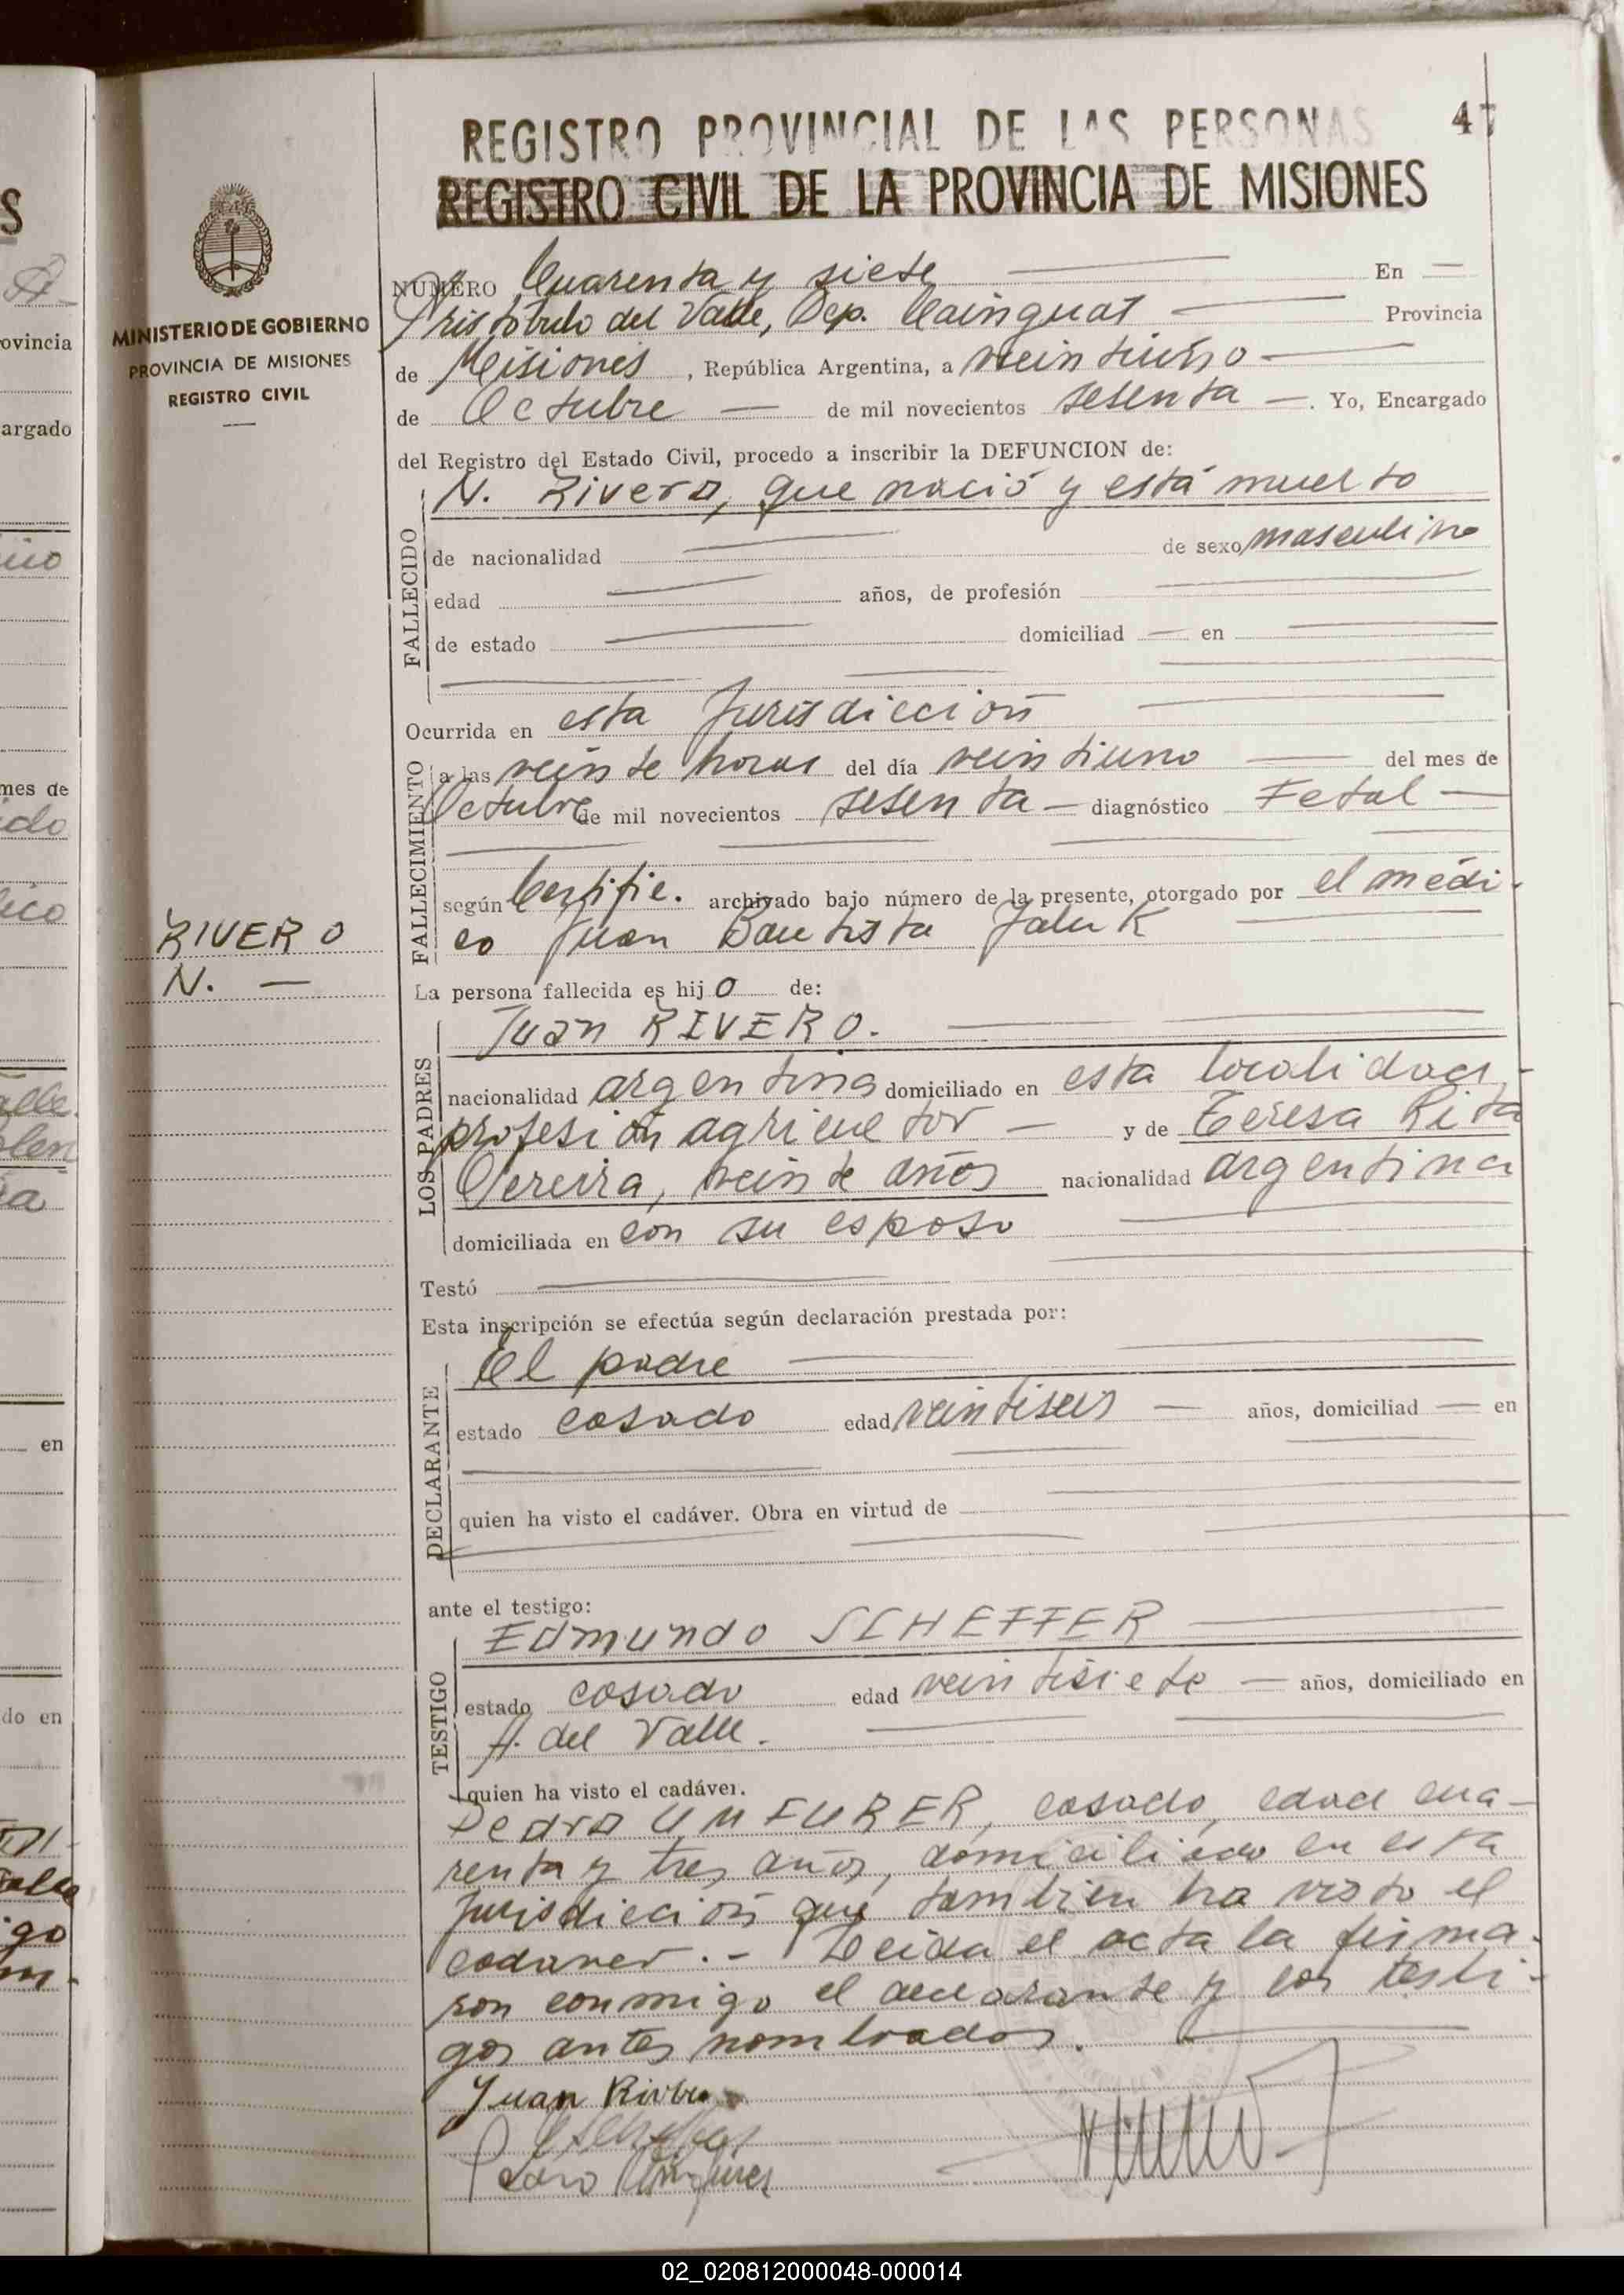 47
REGISTRO PROVINCIAL DE LAS PERSONAS
REGISTRO CIVIL DE LA PROVINCIA DE MISIONES
MINISTERIO DE GOBIERNO
PROVINCIA DE MISIONES
REGISTRO CIVIL
NUMERO Cuarenta y siete En
Aristóbulo del Valle, Dep. Cainguas Provincia
de Misiones, República Argentina, a veintiuno
de Octubre de mil novecientos sesenta. Yo, Encargado
del Registro del Estado Civil, procedo a inscribir la DEFUNCION de:
N. Rivero, que nació y está muerto
FALLECIDO
de nacionalidad de sexo masculino
edad años, de profesión
de estado domiciliad en
Ocurrida en esta Jurisdicción
FALLECIMIENTO
a las veinte horas del día veintiuno del mes de
Octubre de mil novecientos sesenta diagnóstico Fetal
según Certific. archivado bajo número de la presente, otorgado por el médi-
co Juan Bautista
RIVERO
N.
La persona fallecida es hijo de:
LOS PADRES
Juan RIVERO.
nacionalidad argentina domiciliado en esta localidad,
profesión agricultor y de Teresa Rita
Pereira, veinte años nacionalidad argentina
domiciliada en con su esposo
Testó
Esta inscripción se efectúa según declaración prestada por:
DECLARANTE
El padre
estado casado edad veintiseis años, domiciliad en
quien ha visto el cadáver. Obra en virtud de
ante el testigo:
TESTIGO
Edmundo SCHEFFER
estado casado edad veintisiete años, domiciliado en
A. del Valle.
quien ha visto el cadáver.
Pedro UNFURER, casado, edad cua-
renta y tres años, domiciliado en esta
jurisdicción que tambien ha visto el
cadaver.- Leida el acta la firma-
ron conmigo el declarante y los testi-
gos antes nombrados.
Juan Rivero
02_020812000048-000014